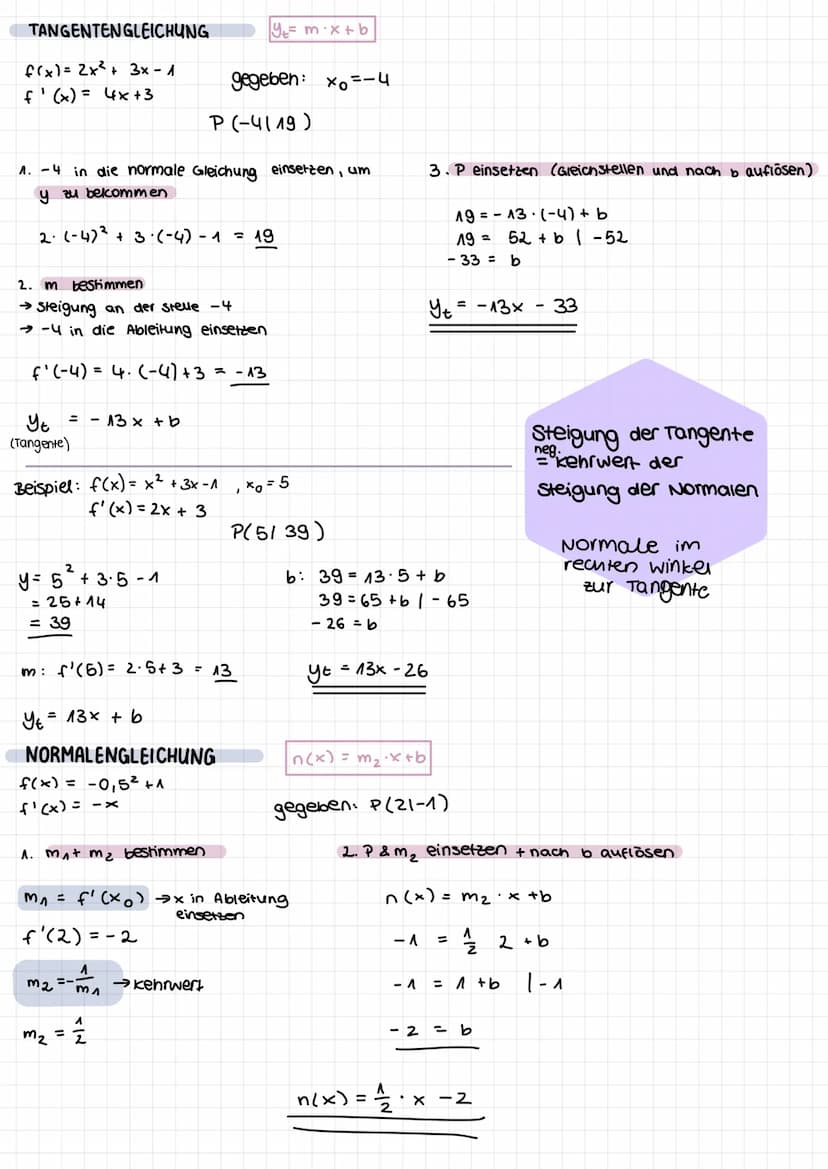 TANGENTENGLEICHUNG
yₜ= m·x+b
f(x)= 2x² + 3x - 1
f'(x) = 4x+3
gegeben: x₀=-4
P(-4|19)
1. -4 in die normale Gleichung einsetzen, um
y zu bekommen
2·(-4)² + 3·(-4) - 1 = 19
2. m bestimmen
→ Steigung an der Stelle -4
→ -4 in die Ableitung einsetzen
f'(-4) = 4·(-4)+3 = -13
yₜ = -13x + b
(Tangente)
3. P einsetzen (Gleichstellen und nach b auflösen)
19 = -13·(-4) + b
19 = 52 + b | -52
-33 = b
yₜ = -13x - 33
Steigung der Tangente
neg.
= Kehrwert der
Steigung der Normalen
Normale im
rechten Winkel
zur Tangente
Beispiel: f(x) = x² + 3x - 1 , x₀ = 5
f'(x) = 2x + 3
P(5|39)
y = 5² + 3·5 - 1
= 25 + 14
= 39
m: f'(5) = 2·5+3 = 13
yₜ = 13x + b
b: 39 = 13·5 + b
39 = 65 + b | - 65
-26 = b
yₜ = 13x - 26
NORMALENGLEICHUNG
n(x) = m₂·x+b
f(x) = -0,5² + 1
f'(x) = -x
gegeben: P(2|-1)
1. m₁ + m₂ bestimmen
m₁ = f'(x₀) → x in Ableitung
einsetzen
f'(2) = -2
m₂ = -1/m₁ → Kehrwert
m₂ = 1/2
2. P & m₂ einsetzen + nach b auflösen
n(x) = m₂ · x + b
-1 = 1/2 2 + b
-1 = 1 + b | -1
-2 = b
n(x) = 1/2 · x - 2